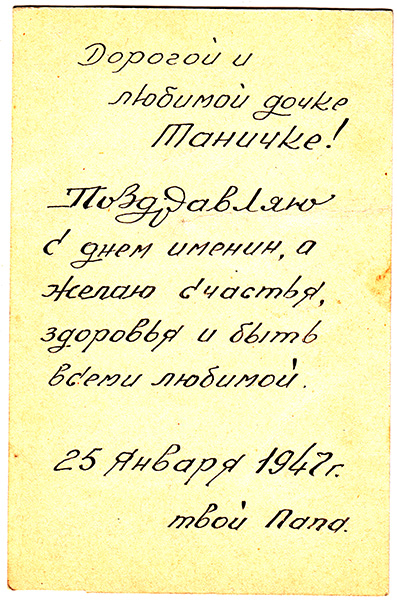 Дорогой и
любимой дочке
Таничке!
Поздравляю
с днем именин, а
желаю счастья,
здоровья и быть
всеми любимой.
25 Января 1947г.
твой Папа.